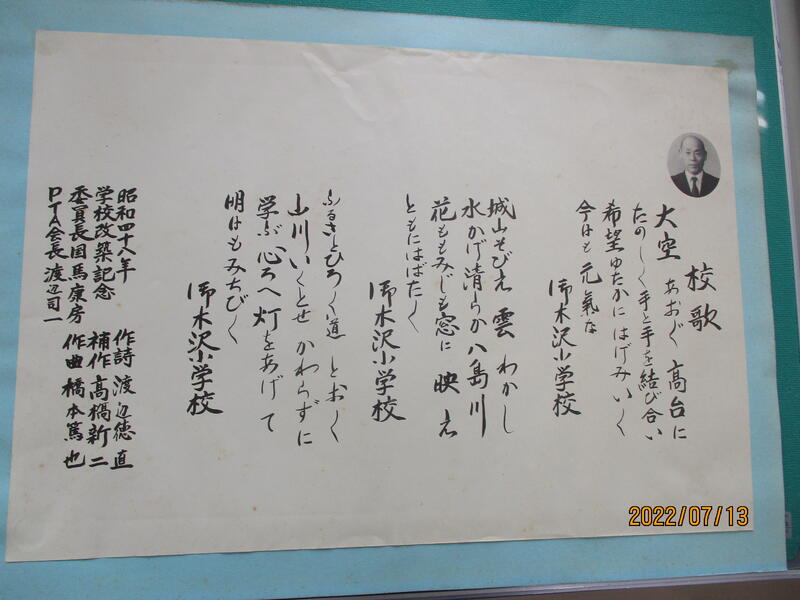 校歌
大空 あおぐ 高台に
たのしく手と手を結び合い
希望ゆたかに はげみいく
今日も 元氣な
御木沢小学校
城山そびえ 雲 わかし
水かげ清らか 八島川
花ももみじも窓に 映え
ともにはばたく
御木沢小学校
ふるさとひろく道 とおく
山川いくとせ かわらずに
学ぶ心へ灯をあげて
明日もみちびく
御木沢小学校
昭和四十八年
学校改築記念
委員長国馬康房
PTA会長 渡辺司一
作詩 渡辺徳直
補作 高橋新二
作曲 橋本篤也
2022/07/13